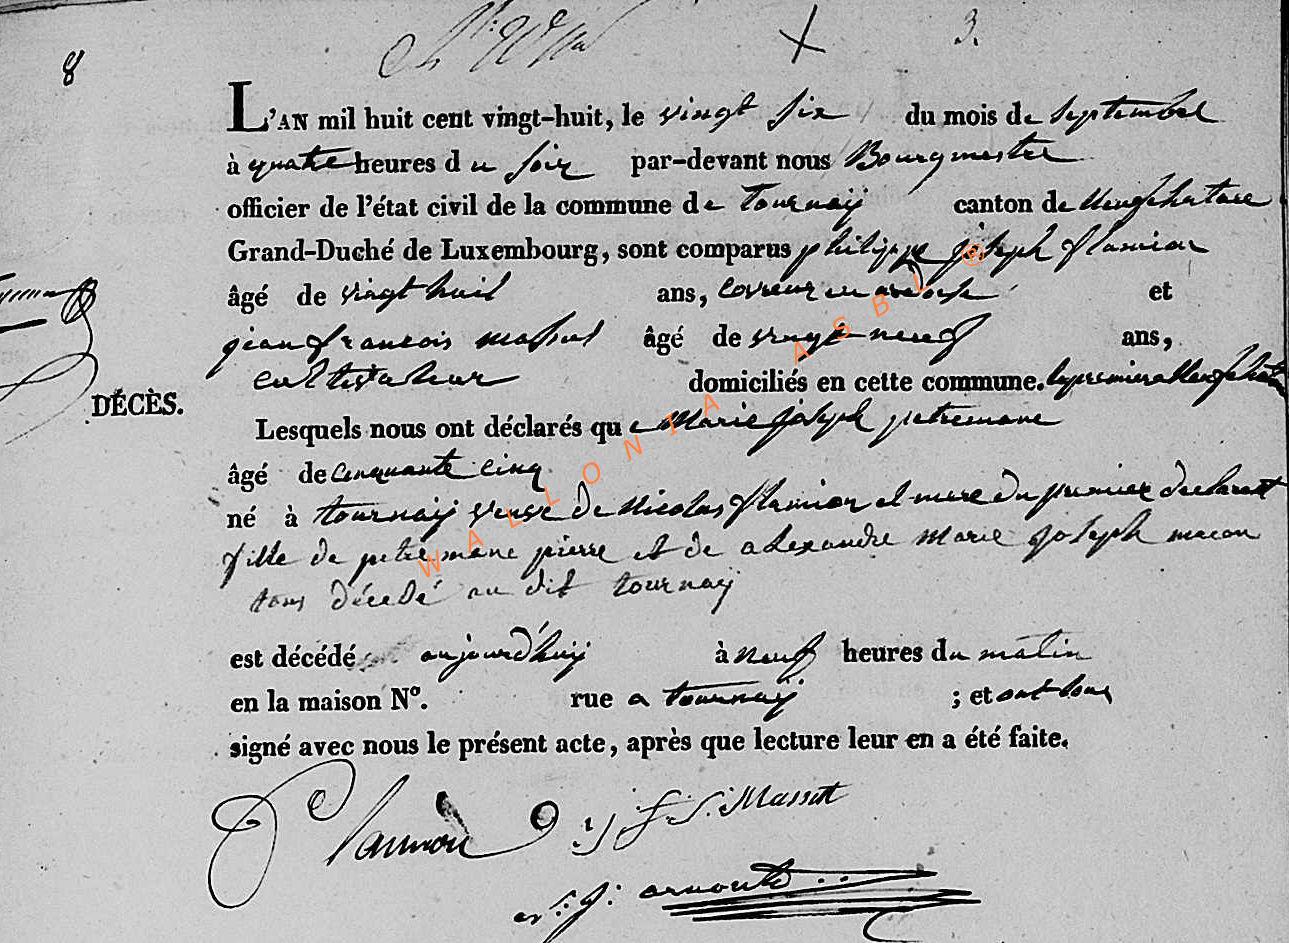 8
3.
L'AN mil huit cent vingt-huit, le vingt six du mois de septembre
à quatre heures du soir par-devant nous Bourgmestre
officier de l'état civil de la commune de tournay canton de neufchateau
Grand-Duché de Luxembourg, sont comparus philippe joseph flamion
âgé de vingt huit ans, covreur en ardoise et
jean francois massut âgé de vingt neuf ans,
cultivateur domiciliés en cette commune. le premier a Neufchateau
DÉCÈS.
Lesquels nous ont déclarés que Marie joseph petremane
âgé de cinquante cinq
né à tournay veuve de Nicolas flamion et mere du premier declarant
fille de petremane pierre et de alexandre Marie joseph macon
tous décedé au dit tournay
est décédé aujourd'huy à neuf heures du matin
en la maison Nº. rue a tournay ; et ont tous
signé avec nous le présent acte, après que lecture leur en a été faite.
flamion J f Massut
arnould
WALLONIA ASBL ®